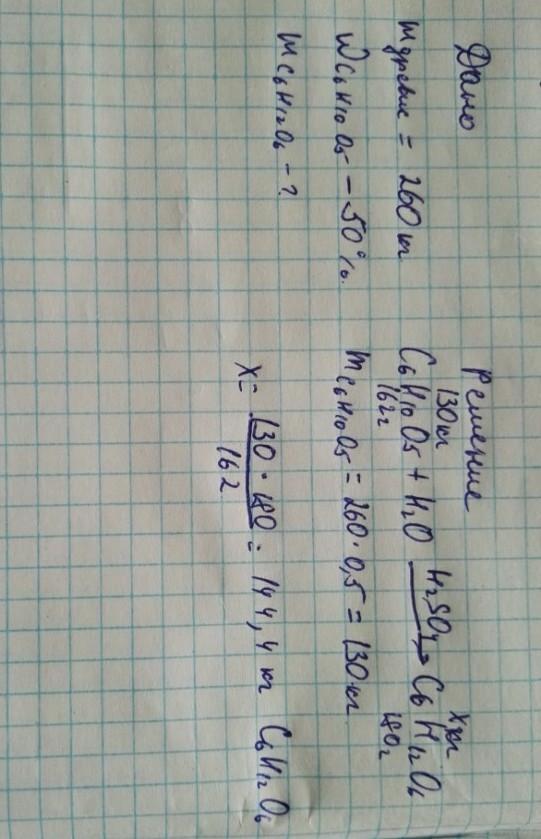 Дано
m древис = 260 кг
W C₆H₁₀O₅ – 50%.
m C₆H₁₂O₆ – ?
Решение
130 кг x кг
C₆H₁₀O₅ + H₂O H₂SO₄→ C₆H₁₂O₆
162 г 180 г
m C₆H₁₀O₅ = 260 · 0,5 = 130 кг
x = 130 · 180 / 162 = 144,4 кг C₆H₁₂O₆